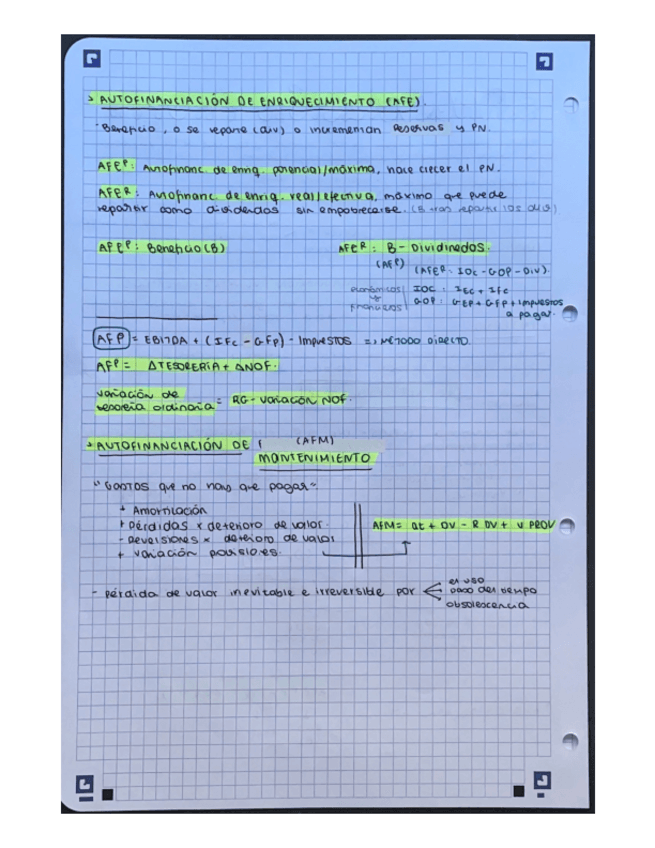 > AUTOFINANCIACIÓN DE ENRIQUECIMIENTO (AFE).
- Beneficio, o se reparte (div) o incrementan Reservas y PN.
AFEᴾ: Autofinanc. de enriq. potencial/máxima, hace crecer el PN.
AFEᴿ: Autofinanc. de enriq. real/efectiva, máximo que puede
repartir como dividendos sin empobrecerse. (B tras repartir los div)
AFEᴾ: Beneficio (B) AFEᴿ: B - Dividendos.
(AFᴾ) (AFER: IOC - GOP - DIV).
económicos IOC : IEC + IFC
financieros GOP : GEP + GFP + Impuestos
a pagar.
AFᴾ = EBITDA + (IFC - GFP) - Impuestos => MÉTODO DIRECTO.
AFᴾ = ΔTESORERÍA + ΔNOF.
variación de
tesorería ordinaria = RG - variación NOF.
> AUTOFINANCIACIÓN DE (AFM)
MONTENIMIENTO
"Gastos que no hay que pagar".
+ Amortización
+ Pérdidas x deterioro de valor.
- Reversiones x deterioro de valor
+ variación provisiones.
AFM = at + DV - R DV + V PROV
- pérdida de valor inevitable e irreversible por
el uso
paso del tiempo
obsolescencia